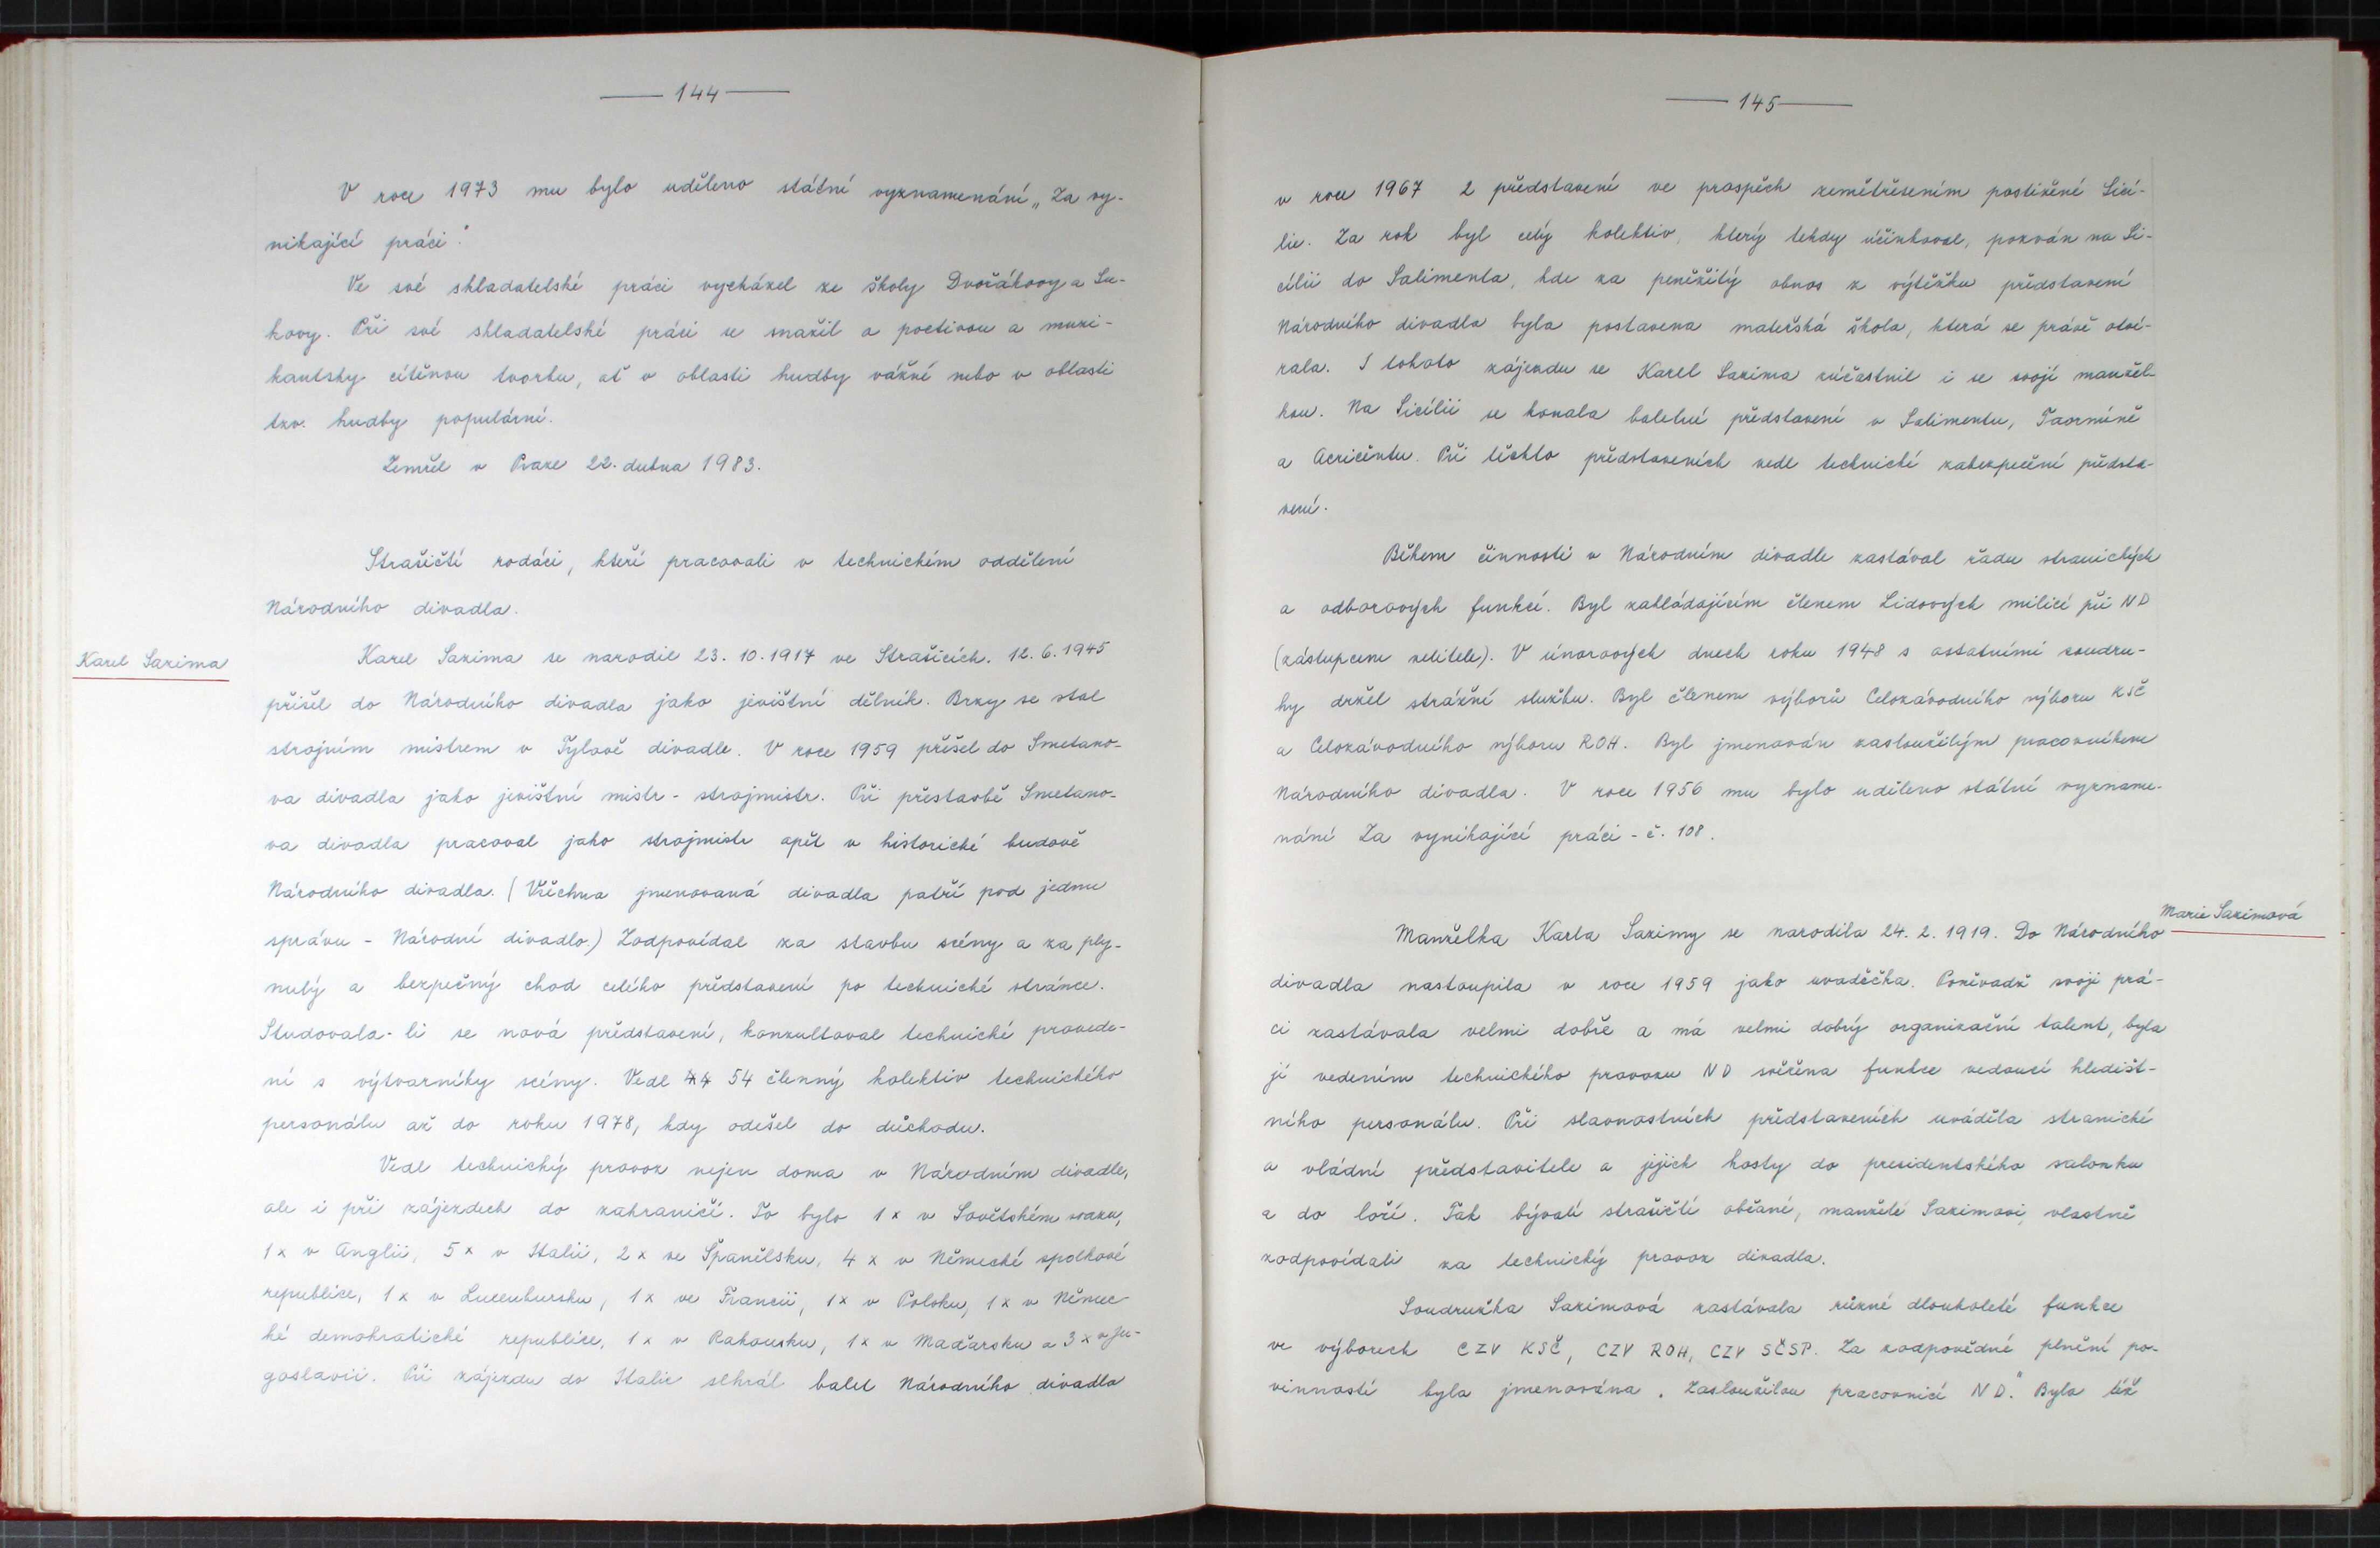 144
V roce 1973 mu bylo uděleno státní vyznamenání „Za vy-
nikající práci".
Ve své skladatelské práci vycházel ze školy Dvořákovy a Su-
kovy. Při své skladatelské práci se snažil o poctivou a muzi-
kantsky cítěnou tvorbu, ať v oblasti hudby vážné nebo v oblasti
tzv. hudby populární.
Zemřel v Praze 22. dubna 1983.
Strašičtí rodáci, kteří pracovali v technickém oddělení
Národního divadla.
Karel Sazima
Karel Sazima se narodil 23. 10. 1917 ve Strašicích. 12. 6. 1945
přišel do Národního divadla jako jevištní dělník. Brzy se stal
strojním mistrem v Tylově divadle. V roce 1959 přešel do Smetano-
va divadla jako jevištní mistr - strojmistr. Při přestavbě Smetano-
va divadla pracoval jako strojmistr opět v historické budově
Národního divadla. (Všechna jmenovaná divadla patří pod jednu
správu - Národní divadlo.) Zodpovídal za stavbu scény a za ply-
nulý a bezpečný chod celého představení po technické stránce.
Studovala-li se nová představení, konzultoval technické provede-
ní s výtvarníky scény. Vedl 44 54 členný kolektiv technického
personálu až do roku 1978, kdy odešel do důchodu.
Vedl technický provoz nejen doma v Národním divadle,
ale i při zájezdech do zahraničí. To bylo 1x v Sovětském svazu,
1x v Anglii, 5x v Itálii, 2x ve Španělsku, 4x v Německé spolkové
republice, 1x v Lucembursku, 1x ve Francii, 1x v Polsku, 1x v Němec-
ké demokratické republice, 1x v Rakousku, 1x v Maďarsku a 3x v Ju-
goslavii. Při zájezdu do Itálie sehrál balet Národního divadla
145
v roce 1967 2 představení ve prospěch zemětřesením postižené Sicí-
lie. Za rok byl celý kolektiv, který tehdy účinkoval, pozván na Si-
cílii do Salimenta, kde za peněžitý obnos z výtěžku představení
Národního divadla byla postavena mateřská škola, která se právě otví-
rala. I tohoto zájezdu se Karel Sazima zúčastnil i se svojí manžel-
kou. Na Sicílii se konala baletní představení v Salimentu, Taormíně
a Acricentu. Při těchto představeních vedl technické zabezpečení předsta-
vení.
Během činnosti v Národním divadle zastával řadu stranických
a odborových funkcí. Byl zakládajícím členem Lidových milicí při ND
(zástupcem velitele). V únorových dnech roku 1948 s ostatními soudru-
hy držel strážní službu. Byl členem výborů Celozávodního výboru KSČ
a Celozávodního výboru ROH. Byl jmenován zasloužilým pracovníkem
Národního divadla. V roce 1956 mu bylo uděleno státní vyzname-
nání Za vynikající práci - č. 108.
Marie Sazimová
Manželka Karla Sazimy se narodila 24. 2. 1919. Do Národního
divadla nastoupila v roce 1959 jako uvaděčka. Poněvadž svoji prá-
ci zastávala velmi dobře a má velmi dobrý organizační talent, byla
jí vedením technického provozu ND svěřena funkce vedoucí hledišt-
ního personálu. Při slavnostních představeních uváděla stranické
a vládní představitele a jejich hosty do presidentského salonku
a do loží. Tak bývalí strašičtí občané, manželé Sazimovi, vlastně
zodpovídali za technický provoz divadla.
Soudružka Sazimová zastávala různé dlouholeté funkce
ve výborech CZV KSČ, CZV ROH, CZV SČSP. Za zodpovědné plnění po-
vinností byla jmenována „Zasloužilou pracovnicí ND." Byla též